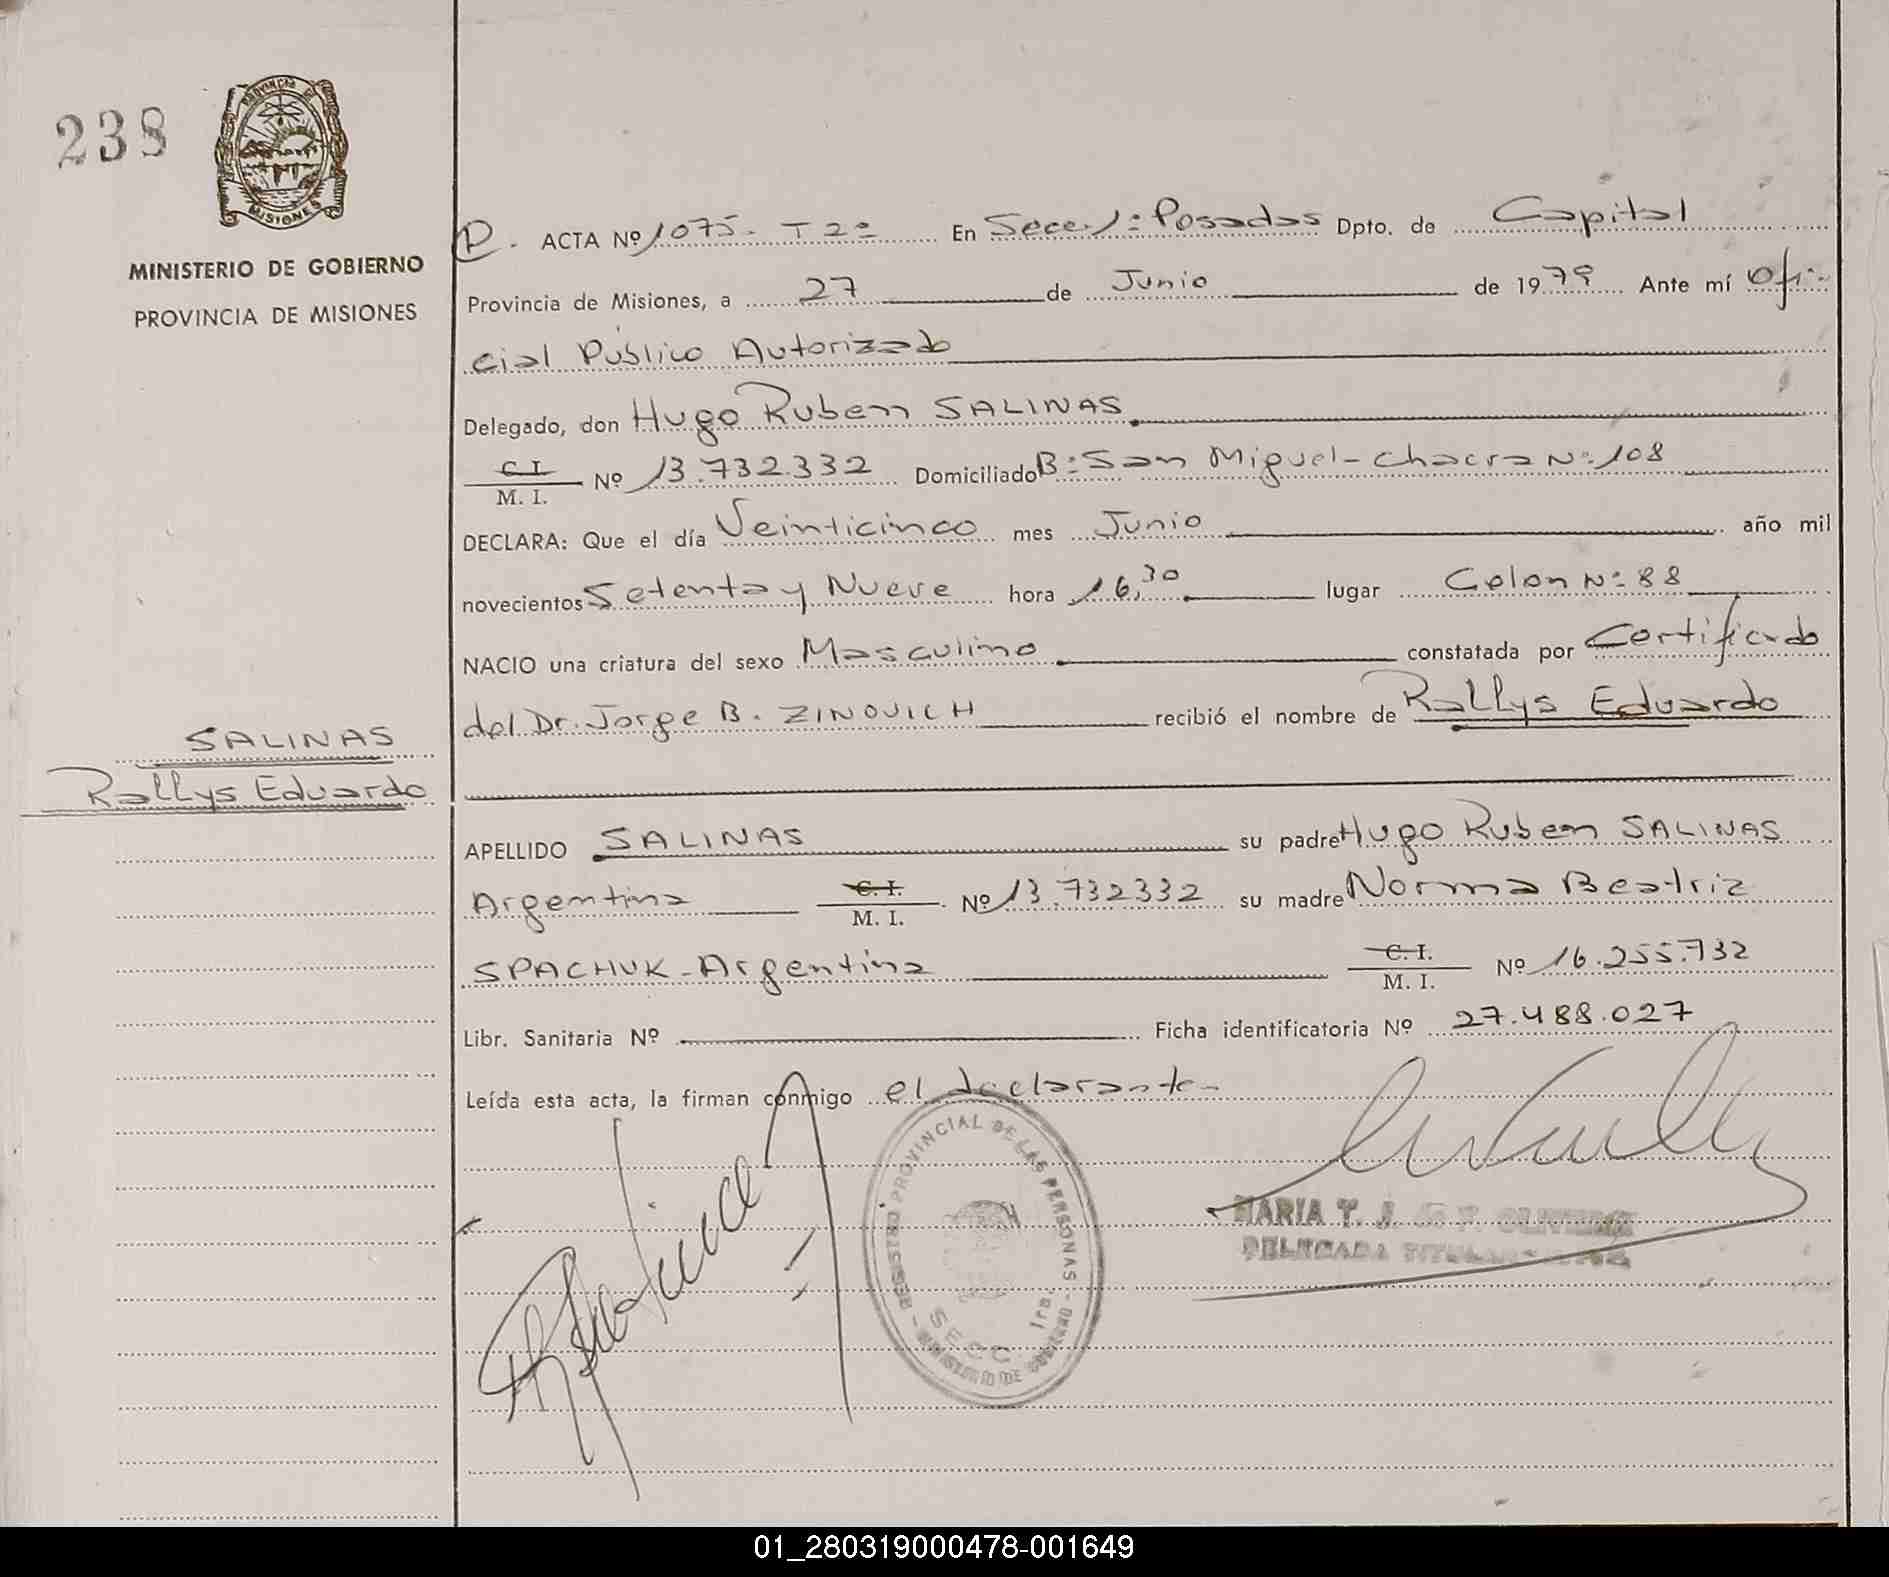 238
PROVINCIA DE
MISIONES
MINISTERIO DE GOBIERNO
PROVINCIA DE MISIONES
SALINAS
Rallys Eduardo
D. ACTA Nº 1075 - T 2º En Secc. 1ª Posadas Dpto. de Capital
Provincia de Misiones, a 27 de Junio de 1979 Ante mí Ofi-
cial Público Autorizado
Delegado, don Hugo Ruben SALINAS
C. I. / M. I. Nº 13.732.332 Domiciliado Bº San Miguel - Chacra Nº 108
DECLARA: Que el día Veinticinco mes Junio año mil
novecientos Setenta y Nueve hora 16,30 lugar Colon Nº 88
NACIO una criatura del sexo Masculino constatada por Certificado
del Dr. Jorge B. ZINOVICH recibió el nombre de Rallys Eduardo
APELLIDO SALINAS su padre Hugo Ruben SALINAS
Argentina C. I. / M. I. Nº 13.732332 su madre Norma Beatriz
SPACHUK - Argentina C. I. / M. I. Nº 16.255.732
Libr. Sanitaria Nº Ficha identificatoria Nº 27.488.027
Leída esta acta, la firman conmigo el declarante-
REGISTRO PROVINCIAL DE LAS PERSONAS - MINISTERIO DE GOBIERNO -
SECC. 1ra.
MARIA T. J. de F. OLIVEIRA
DELEGADA TITULAR
01_280319000478-001649